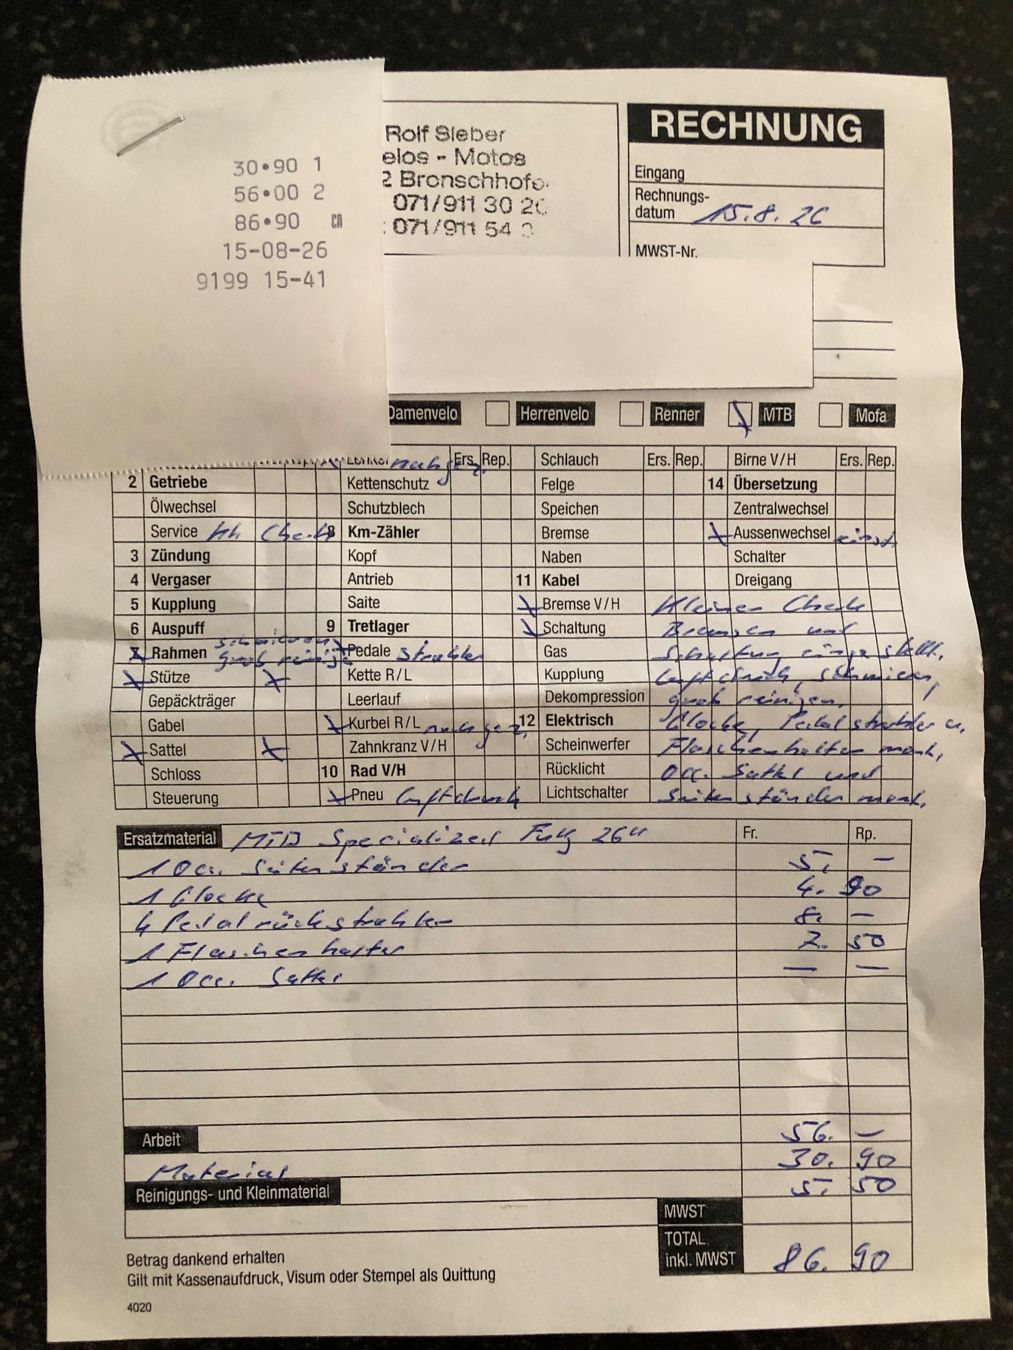 30•90 1
56•00 2
86•90 CA
15-08-26
9199 15-41
Rolf Sieber
elos - Motos
2 Bronschhofe
071/911 30 20
: 071/911 54
RECHNUNG
Eingang
Rechnungs-
datum 15.8.26
MWST-Nr.
Damenvelo Herrenvelo Renner MTB Mofa
Lenker nachgez. Ers. Rep. Schlauch Ers. Rep. Birne V/H Ers. Rep.
2 Getriebe Kettenschutz Felge 14 Übersetzung
Ölwechsel Schutzblech Speichen Zentralwechsel
Service kl. Check 8 Km-Zähler Bremse Aussenwechsel einst.
3 Zündung Kopf Naben Schalter
4 Vergaser Antrieb 11 Kabel Dreigang
5 Kupplung Saite Bremse V/H Kleiner Check
6 Auspuff schmieren 9 Tretlager Schaltung Bremsen und
7 Rahmen grob reinige Pedale Strahler Gas Schaltung eingestellt,
Stütze Kette R/L Kupplung Luftdruck, schmieren,
Gepäckträger Leerlauf Dekompression grob reinigen,
Gabel Kurbel R/L nachgez. 12 Elektrisch Glocke, Pedalstrahler u.
Sattel Zahnkranz V/H Scheinwerfer Flaschenhalter mont,
Schloss 10 Rad V/H Rücklicht Occ. Sattel und
Steuerung Pneu Luftdruck Lichtschalter Seitenständer mont.
Ersatzmaterial MTB Specialized Fully 26" Fr. Rp.
1 Occ. Seitenständer 5. —
1 Glocke 4. 90
4 Pedalrückstrahler 8. —
1 Flaschenhalter 7. 50
1 Occ. Sattel — —
Arbeit 56. —
Material 30. 90
Reinigungs- und Kleinmaterial 5. 50
MWST
TOTAL
inkl. MWST 86. 90
Betrag dankend erhalten
Gilt mit Kassenaufdruck, Visum oder Stempel als Quittung
4020